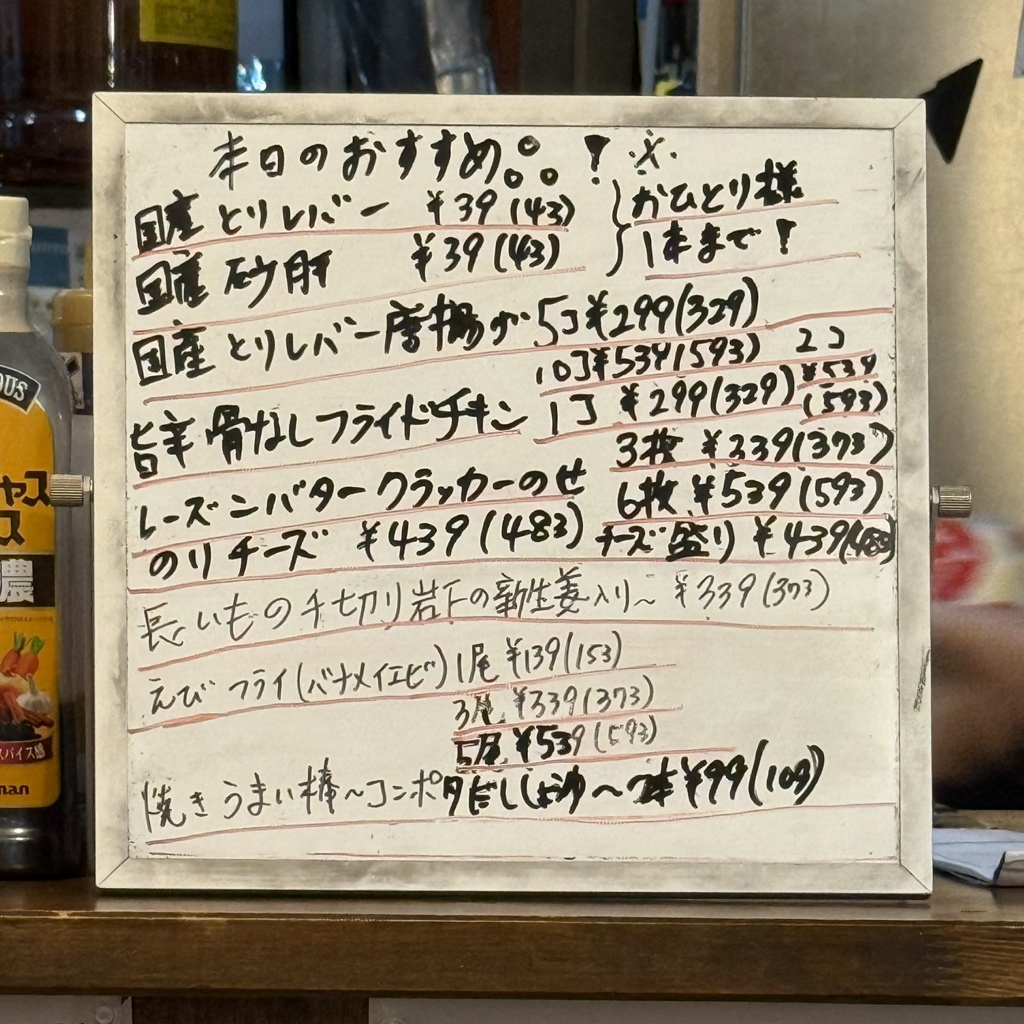 本日のおすすめ。。。!※
国産 とりレバー ¥39(43)
国産 砂肝 ¥39(43)
おひとり様
1本まで!
国産 とりレバー唐揚げ 5コ ¥299(329)
10コ ¥539(593)
旨辛 骨なしフライドチキン 1コ ¥299(329)
2コ
¥539
(593)
レーズンバタークラッカーのせ
3枚 ¥339(373)
6枚 ¥539(593)
のりチーズ ¥439(483) チーズ盛り ¥439(483)
長いもの千切り岩下の新生姜入り~ ¥339(373)
えびフライ(バナメイエビ) 1尾 ¥139(153)
3尾 ¥339(373)
5尾 ¥539(593)
焼きうまい棒~コンポタだししょうゆ~ ¥99(109)
ャス
ス
濃
スパイス
man